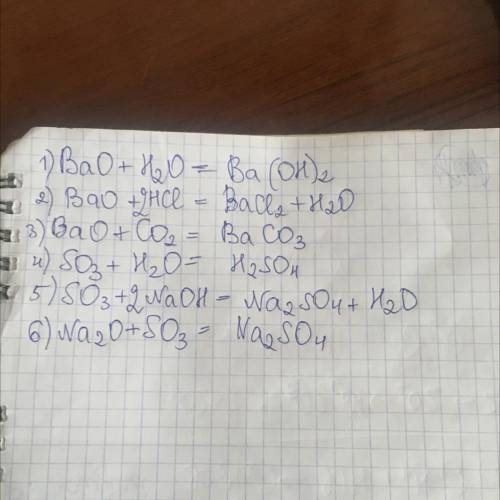 1) BaO + H₂O = Ba(OH)₂
2) BaO + 2HCl = BaCl₂ + H₂O
3) BaO + CO₂ = BaCO₃
4) SO₃ + H₂O = H₂SO₄
5) SO₃ + 2NaOH = Na₂SO₄ + H₂O
6) Na₂O + SO₃ = Na₂SO₄